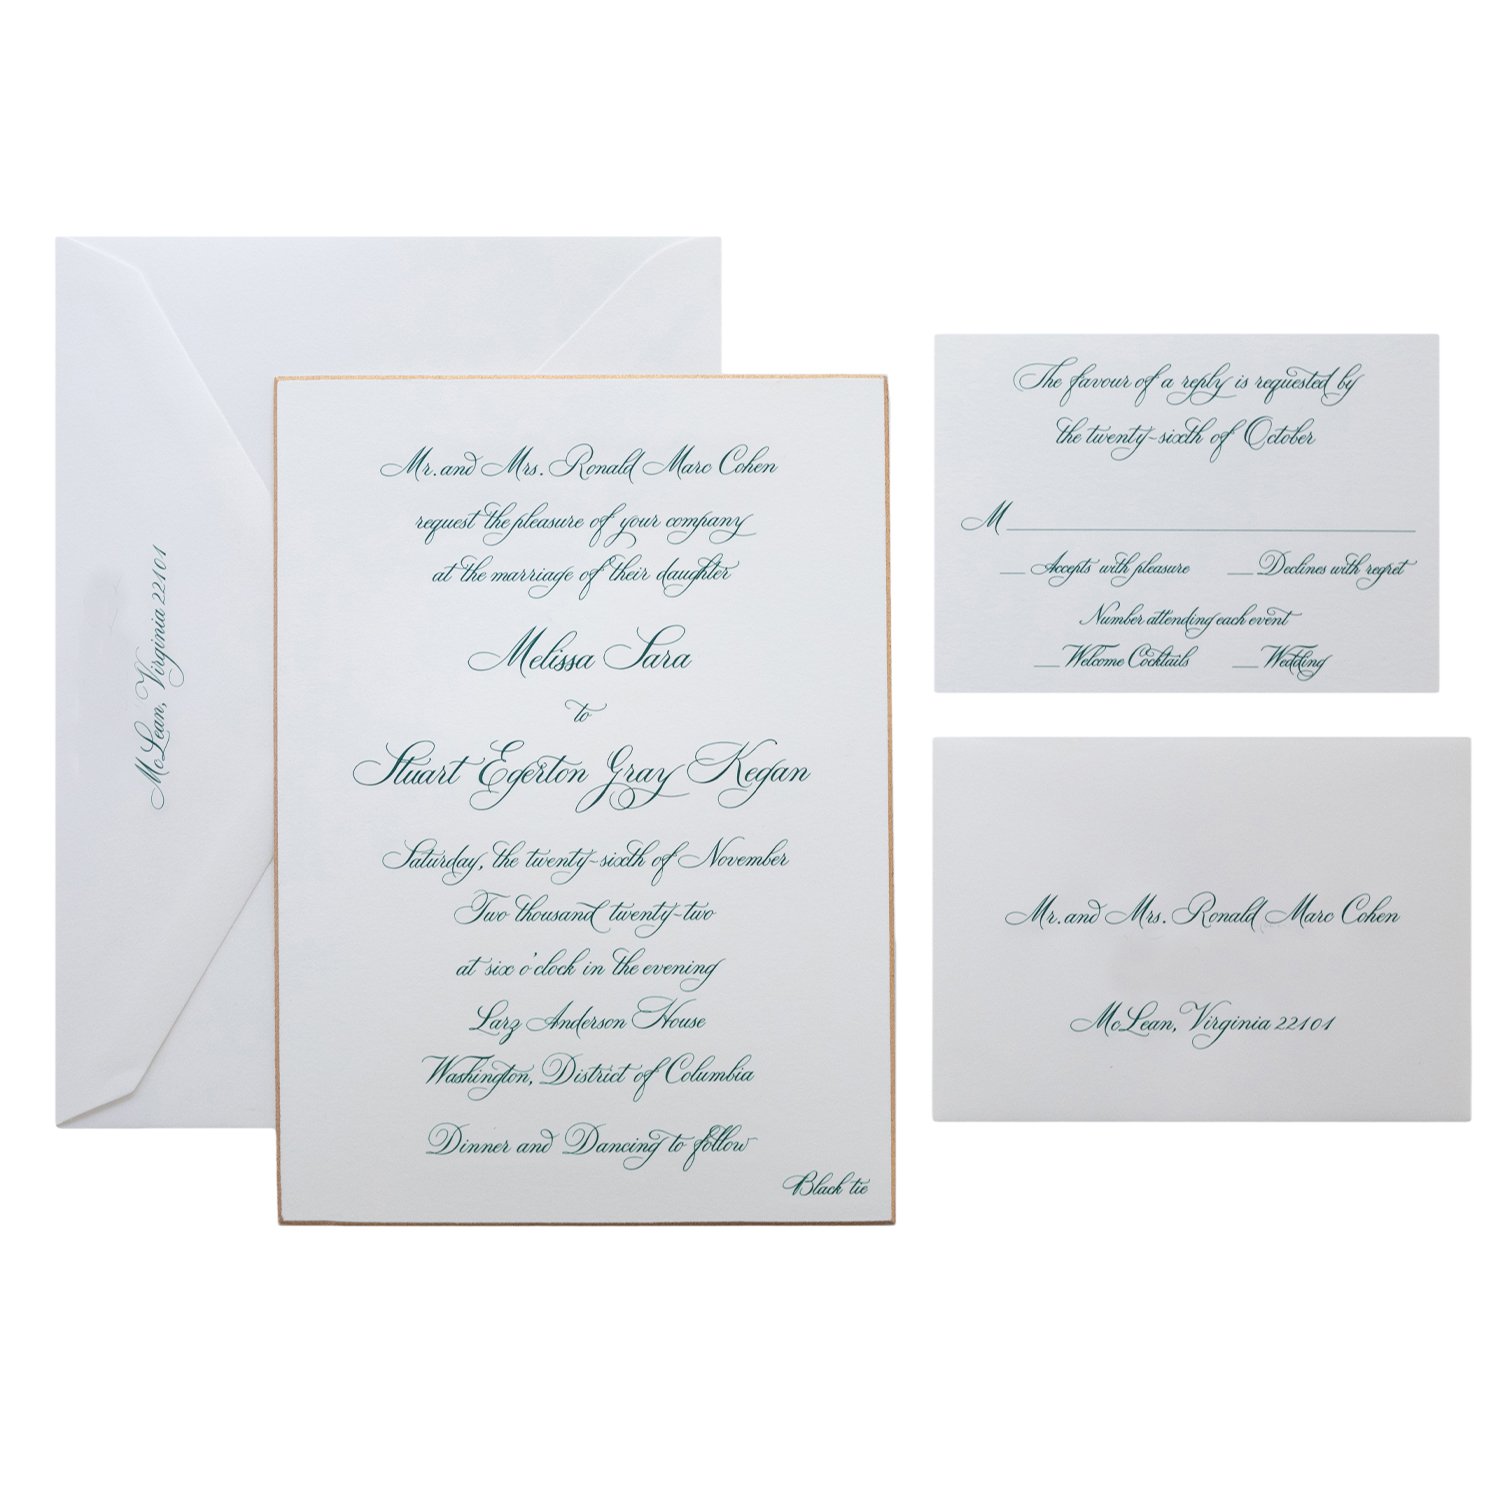 McLean, Virginia 22101
Mr. and Mrs. Ronald Marc Cohen
request the pleasure of your company
at the marriage of their daughter
Melissa Sara
to
Stuart Egerton Gray Kegan
Saturday, the twenty-sixth of November
Two thousand twenty-two
at six o'clock in the evening
Larz Anderson House
Washington, District of Columbia
Dinner and Dancing to follow
Black tie
The favour of a reply is requested by
the twenty-sixth of October
M
Accepts with pleasure Declines with regret
Number attending each event
Welcome Cocktails Wedding
Mr. and Mrs. Ronald Marc Cohen
McLean, Virginia 22101